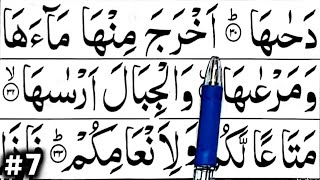 دَحٰىهَا ؕ‏﴿۳۰﴾ اَخْرَجَ مِنْهَا مَآءَهَا
وَمَرْعٰىهَا ﴿۳۱﴾ وَالْجِبَالَ اَرْسٰىهَا ۙ‏﴿۳۲﴾
مَتَاعًا لَّكُمْ وَلِاَنْعَامِكُمْ ؕ‏﴿۳۳﴾ فَاِذَا
#7